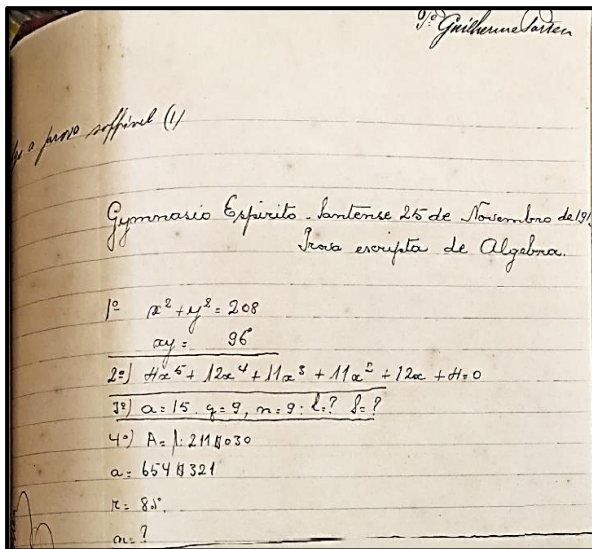 Pe Guilherme Porten
a prova soffrivel (1)
Gymnasio Espirito-Santense 25 de Novembro de 191
Prova escripta de Algebra.
1º x² + y² = 208
xy = 96
2º) 4x⁵ + 12x⁴ + 11x³ + 11x² + 12x + 4 = 0
3º) a = 15. q = 9, n = 9: l = ? S = ?
4º) A = 1:211$030
a = 654$321
r = 8%.
n = ?